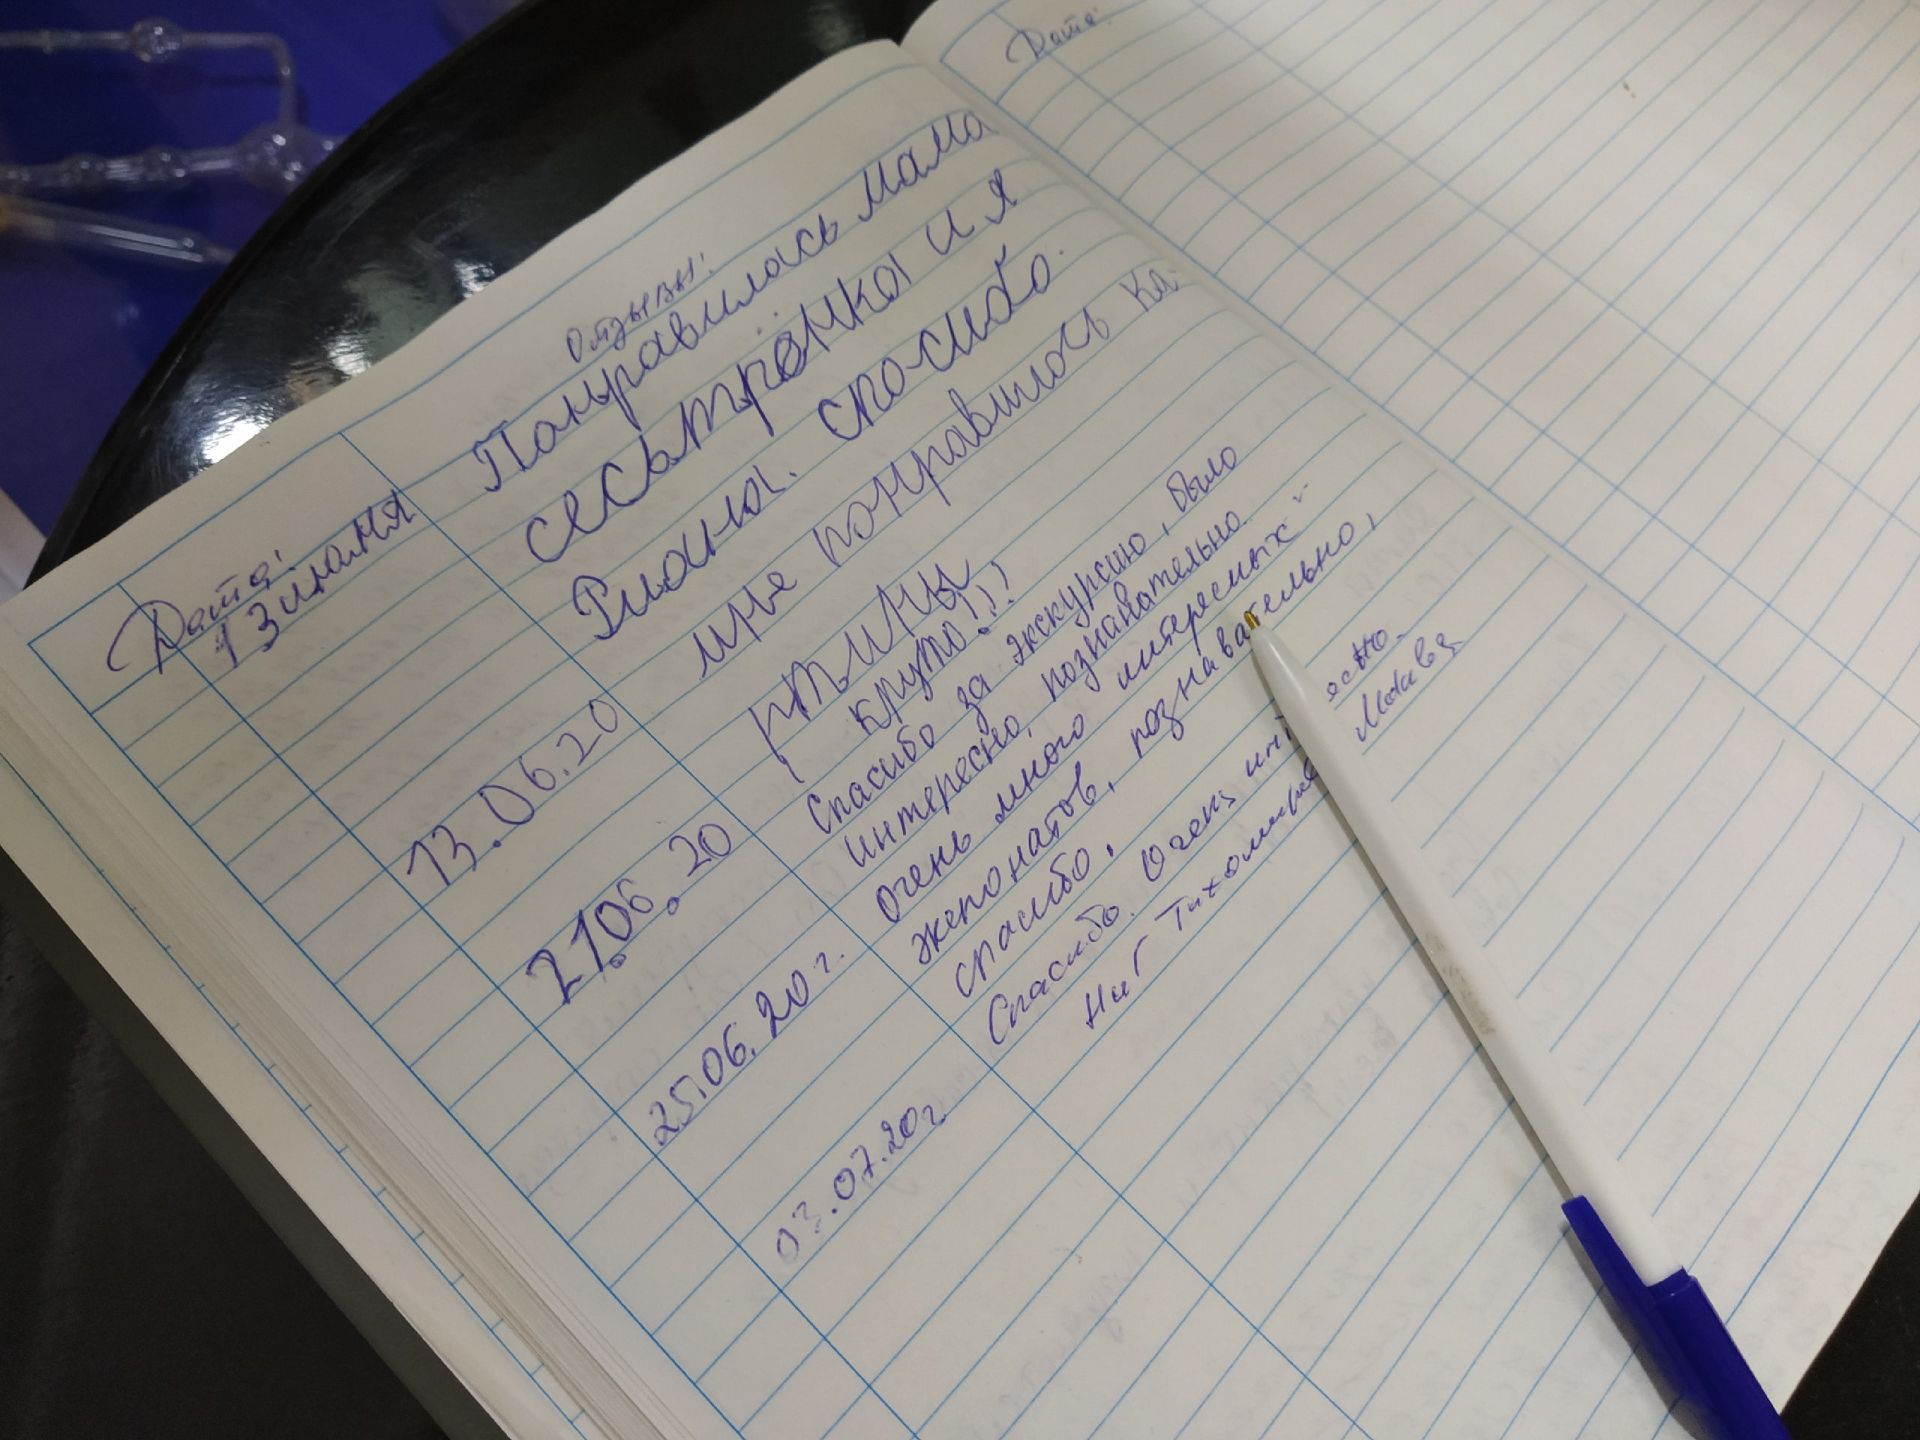 Дата:
Отзывы:
13 июня
Понравилась мама
сестрёнка и я
Риана. спасибо.
13.06.20
мне понравились ка-
ртины
круто!!!
21.06.20
Спасибо за экскурсию, было
интересно, познавательно.
25.06.20 г.
Очень много интересных
экспонатов, познавательно,
спасибо.
03.07.20 г
Спасибо. Очень
Тихомиров
Дата: